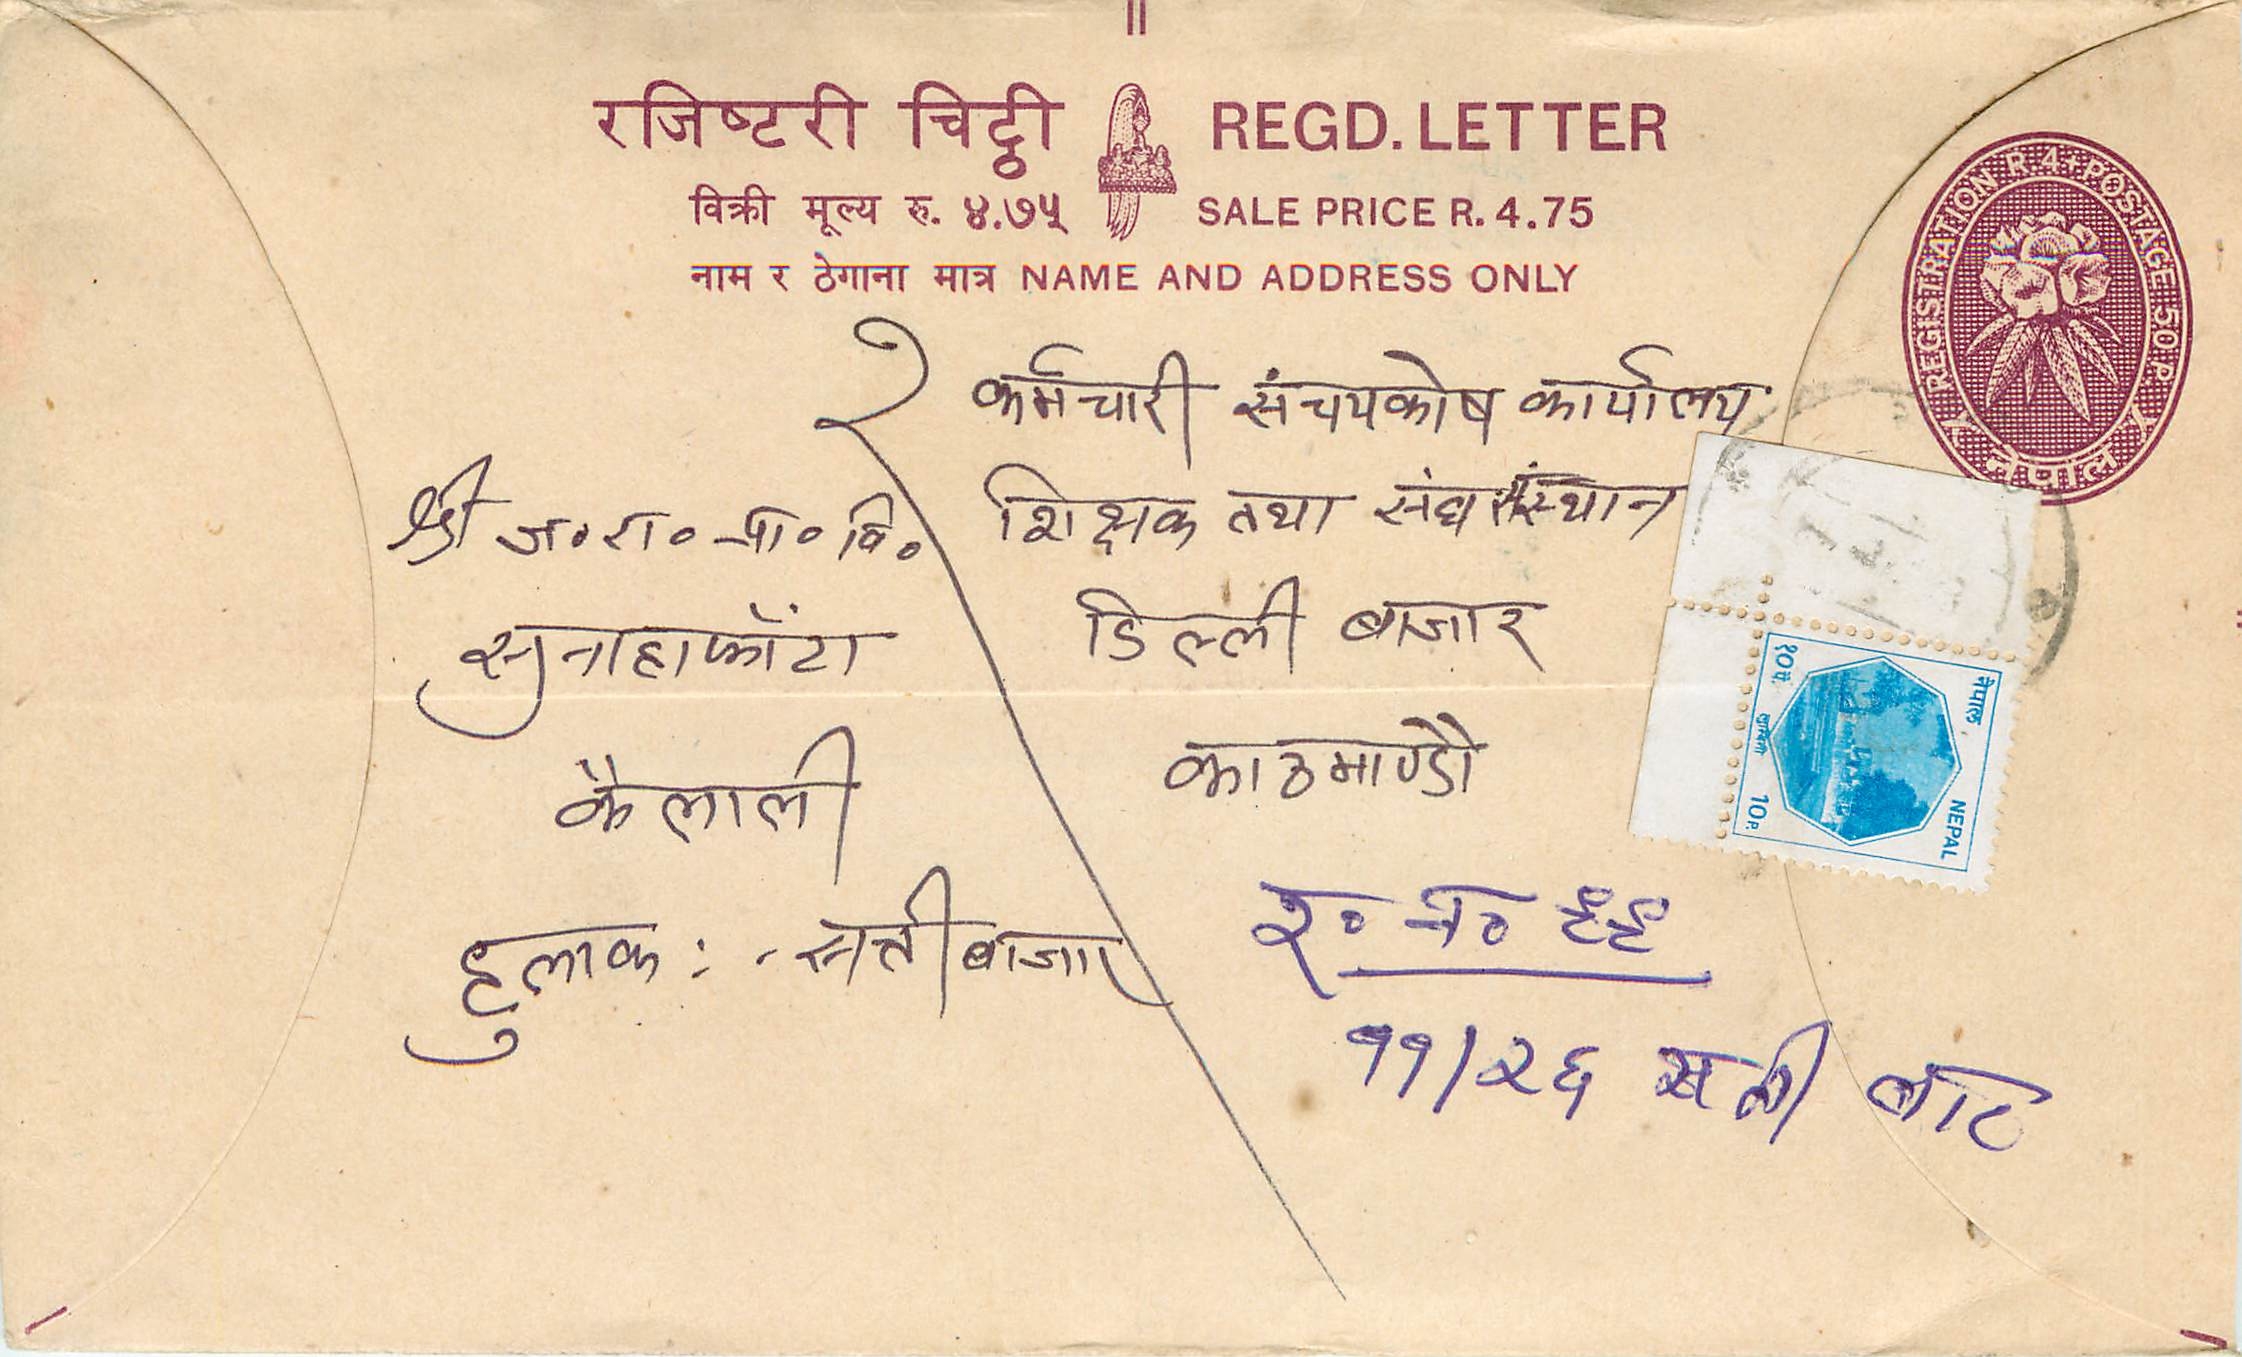 रजिष्टरी चिट्ठी REGD. LETTER
विक्री मूल्य रु. ४.७५ SALE PRICE R. 4.75
नाम र ठेगाना मात्र NAME AND ADDRESS ONLY
REGISTRATION R.4+POSTAGE 50 P.
नेपाल
कर्मचारी संचयकोष कार्यालय
शिक्षक तथा संघ संस्थान
डिल्ली बाजार
काठमाण्डौ
श्री ज॰ रा॰ प्रा॰ वि॰
सुनाहाफाँटा
कैलाली
हुलाक :- सत्ती बाजार
र॰ न॰ ९९
११/२६ सत्ती बाट
नेपाल १०पै.
NEPAL 10P.